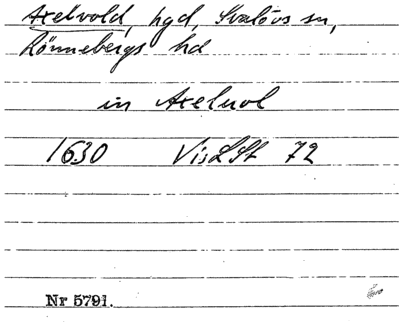 Axelvold, hgd, Svalövs sn,
Rönnebergs hd
in Axeluol
1630 VisLSt 72
Nr 5791.